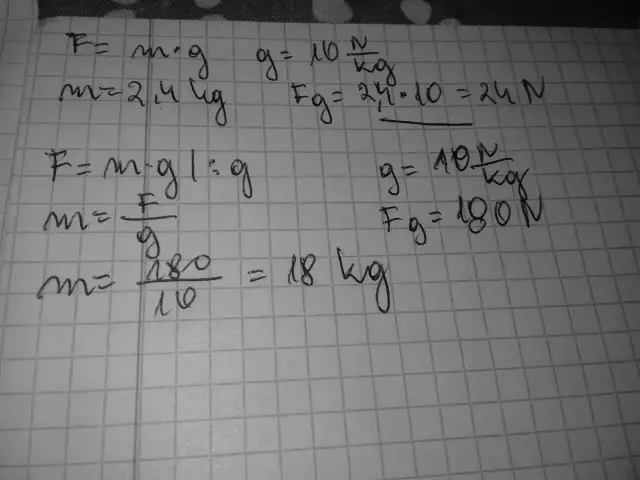 F = m·g g = 10 N/kg
m = 2,4 kg Fg = 2,4·10 = 24 N
F = m·g |:g g = 10 N/kg
m = F/g Fg = 180N
m = 180/10 = 18 kg